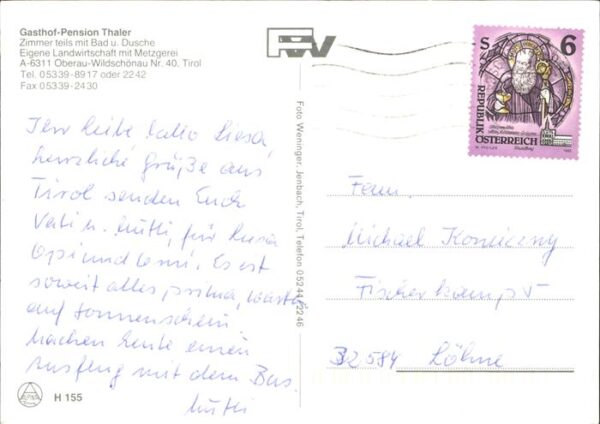 Gasthof-Pension Thaler
Zimmer teils mit Bad u. Dusche
Eigene Landwirtschaft mit Metzgerei
A-6311 Oberau-Wildschönau Nr. 40, Tirol
Tel. 05339-8917 oder 2242
Fax 05339-2430
Ihr liebe
herzliche Grüße aus
Tirol senden Euch
Vati u. Mutti, für
Opi und Omi. Es ist
soweit alles prima, warten
auf Sonnenschein.
Machen heute einen
Ausflug mit dem Bus.
Mutti
H 155
Foto Weninger, Jenbach, Tirol, Telefon 05244/2246
S 6
REPUBLIK
ÖSTERREICH
Fam.
Michael
Fischerkamp 5
32584 Löhne